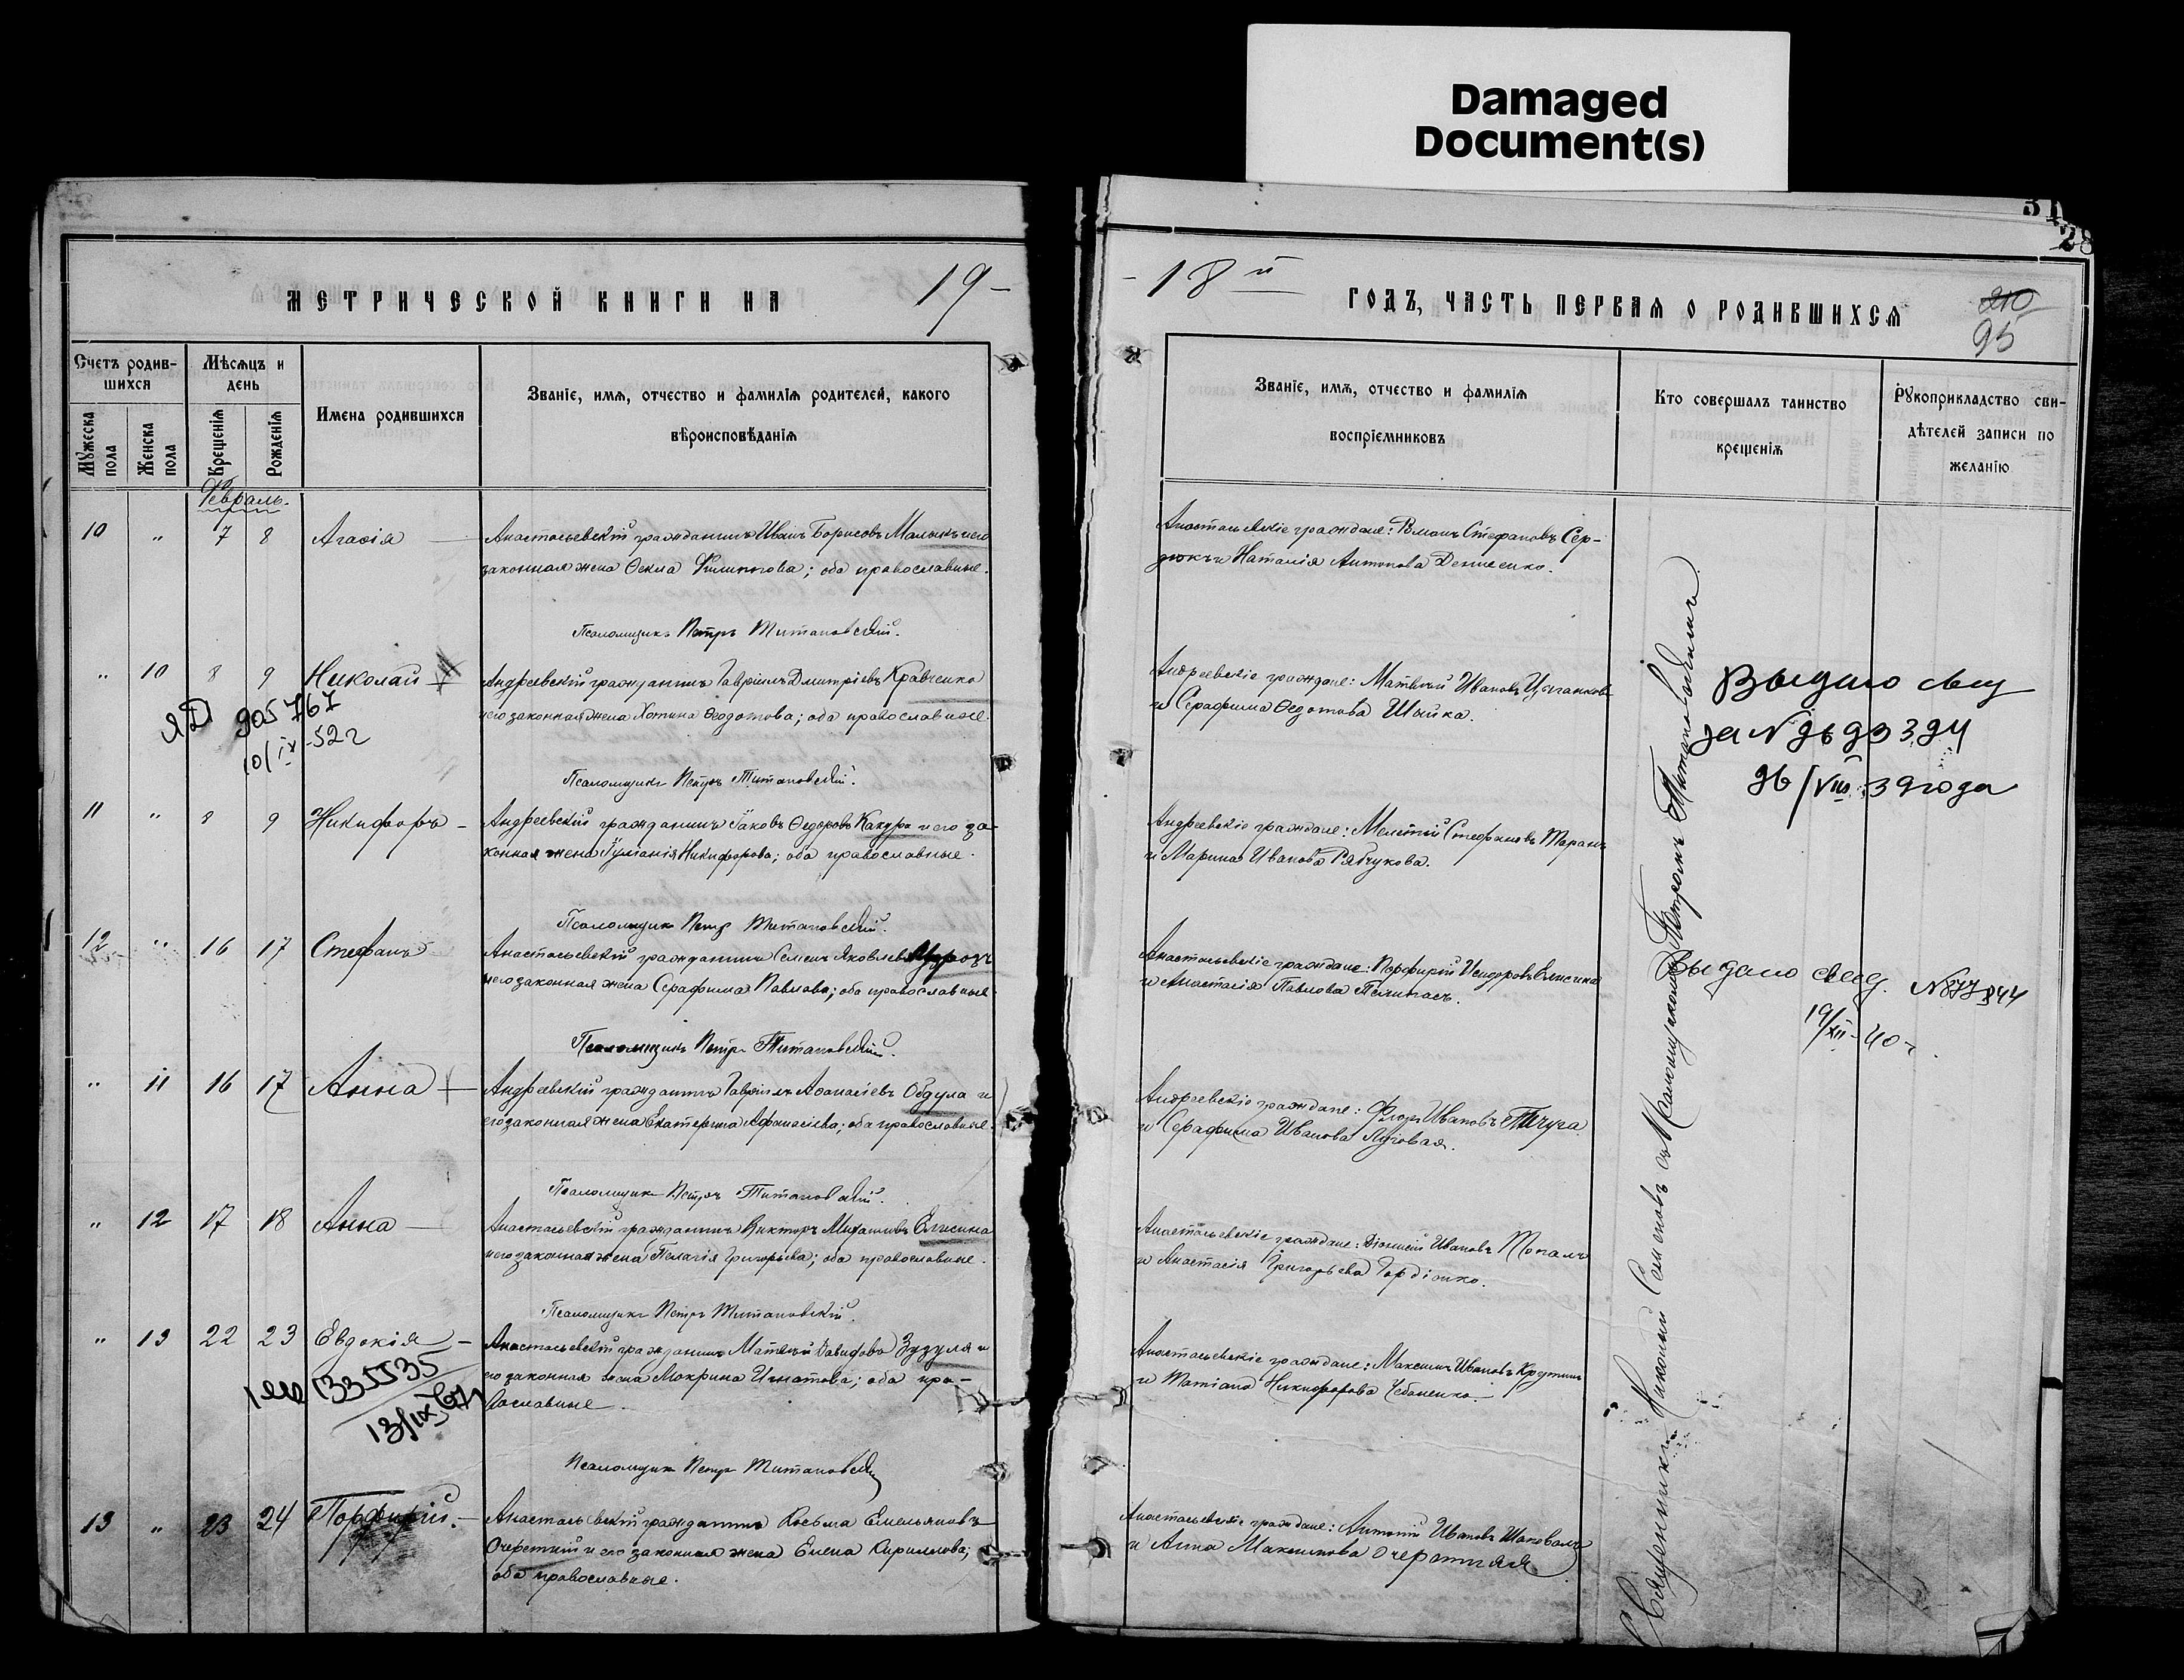 Damaged
Document(s)
31
28
МЕТРИЧЕСКОЙ КНИГИ НА 19-
-18й ГОДЪ, ЧАСТЬ ПЕРВАЯ О РОДИВШИХСЯ
210
95
Счетъ родив-
шихся
Мѣсяцъ и
день
Имена родившихся
Званіе, имя, отчество и фамилія родителей, какого
вѣроисповѣданія
Мужеска
пола
Женска
пола
Крещенія
Рожденія
Званіе, имя, отчество и фамилія
воспріемниковъ
Кто совершалъ таинство
крещенія
Рукоприкладство сви-
дѣтелей записи по
желанію
Февраль.
10 " 7 8 Агафія Анастасьевскій гражданинъ Иванъ Борисовъ Малыкъ и его
законная жена Ѳекла Филиппова; оба православные.
Псаломщикъ Петръ Титановскій.
Анастасьевскіе граждане: Романъ Стефановъ Сер-
дюкъ и Наталія Антонова Денисенко.
" 10 8 9 Николай Андреевскій гражданинъ Гавріилъ Дмитріевъ Кравченко
и его законная жена Хотина Ѳеодотова; оба православные.
ЯД 905767
10/ix-52г
Псаломщикъ Петръ Титановскій.
Андреевскіе граждане: Матвѣй Ивановъ Цыганковъ
и Серафима Ѳедотова Шыйка.
Выдано свид
за № 2b 93394
26/VIII 39 года
11 " 8 9 Никифоръ Андреевскій гражданинъ Іаковъ Ѳедоровъ Качура и его за-
конная жена Іуліанія Никифорова; оба православные.
Псаломщикъ Петръ Титановскій.
Андреевскіе граждане: Мелетій Стефановъ Таранъ
и Марина Иванова Рябчукова.
12 " 16 17 Стефанъ Анастасьевскій гражданинъ Семенъ Яковлевъ Морозъ
и его законная жена Серафима Павлова; оба православные.
Псаломщикъ Петръ Титановскій.
Анастасьевскіе граждане: Порфирій Исидоровъ Елисина
и Анастасія Павлова
Выдано свид. №877844
19/XII-40г.
" 11 16 17 Анна Андреевскій гражданинъ Гавріилъ Аѳанасіевъ Обдула и
его законная жена Екатерина Афанасіева; оба православные.
Псаломщикъ Петръ Титановскій.
Андреевскіе граждане: Флоръ Ивановъ
и Серафима Иванова Луговая.
" 12 17 18 Анна Анастасьевскій гражданинъ Викторъ Михаиловъ Елисина
и его законная жена Пелагія Григорьева; оба православные.
Псаломщикъ Петръ Титановскій.
Анастасьевскіе граждане: Діонисій Ивановъ Копалъ
и Анастасія Григорьева Гордіенко.
" 13 22 23 Евдокія Анастасьевскій гражданинъ Матвѣй Давидовъ Зузуля и
его законная жена Мокрина Игнатова; оба пра-
вославные.
335535
13/ix
Псаломщикъ Петръ Титановскій
Анастасьевскіе граждане: Максимъ Ивановъ
и Татіана Никифорова Чебаненко.
13 " 23 24 Порфирій. Анастасьевскій гражданинъ Косьма Емельяновъ
Очеретній и его законная жена Елена Кириллова;
оба православные.
Анастасьевскіе граждане: Антоній Ивановъ Шаповалъ
и Анна Максимова Очеретняя
Священникъ Николай Семеновъ съ Псаломщикомъ Петромъ Титановскимъ